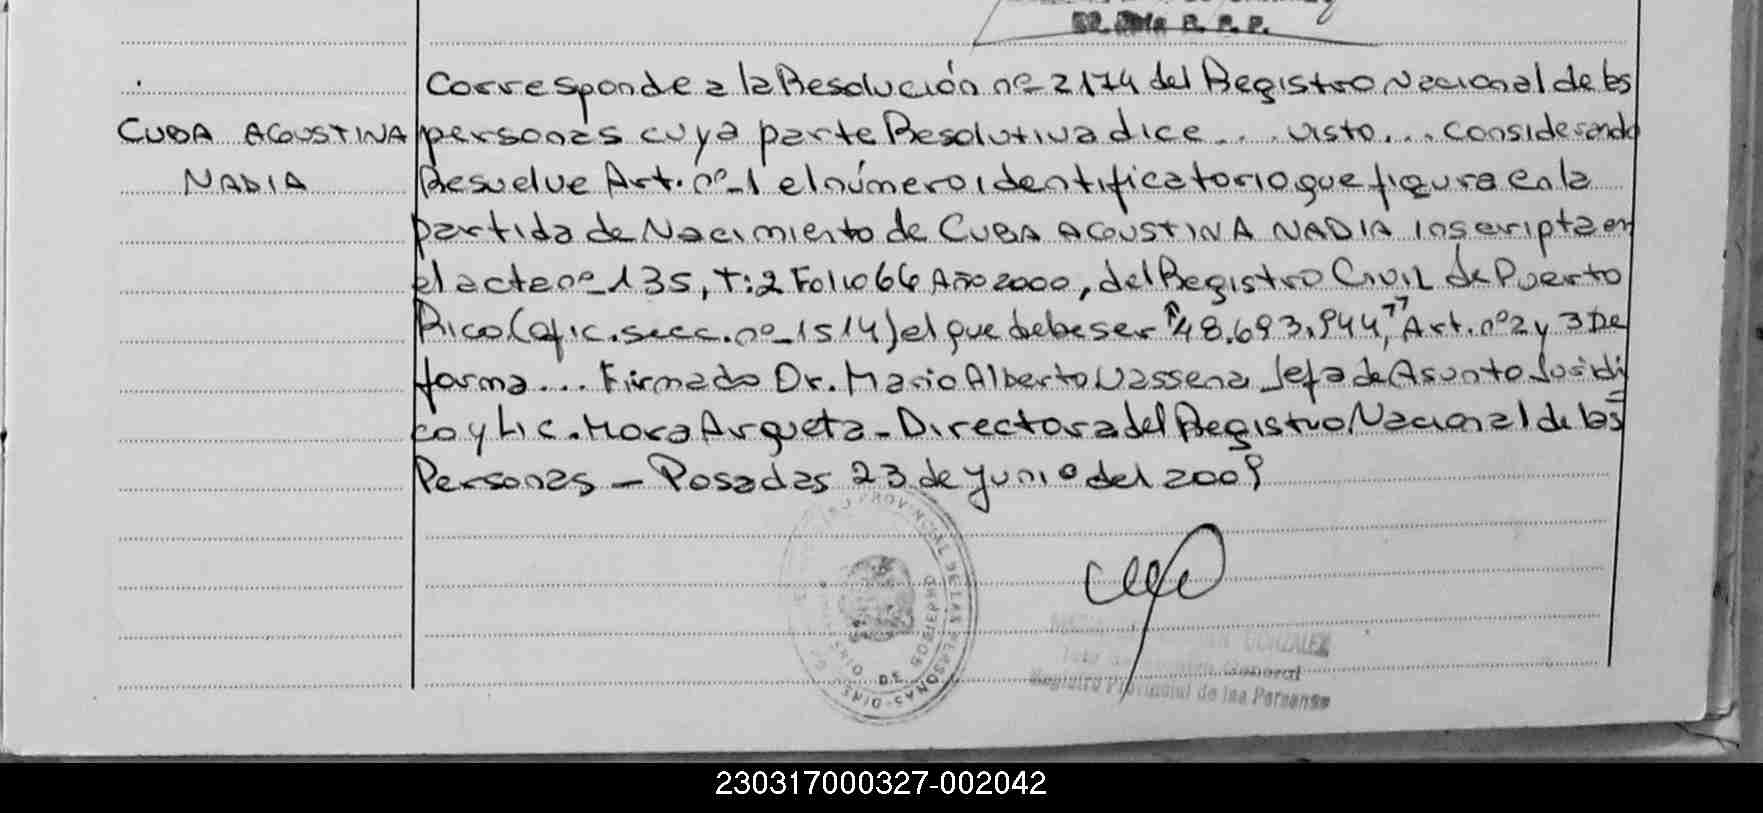 Corresponde a la Resolución nº 2174 del Registro Nacional de las
CUBA AGOUSTINA personas cuya parte Resolutiva dice... visto... considerando
NADIA Resuelve Art. nº-1 el número identificatorio que figura en la
partida de Nacimiento de CUBA AGOUSTINA NADIA inscripta en
el acta nº 135, T:2 Folio 66 Año 2000, del Registro Civil de Puerto
Rico (ofic. secc. nº 1514) el que debe ser "48.693.944," Art. nº 2 y 3 De
forma... Firmado Dr. Mario Alberto Vassena Jefa de Asunto Juridi
co y Lic. Mora Argueta - Directora del Registro Nacional de las
Personas - Posadas 23 de Junio del 2009
PROVINCIAL DE LAS PERSONAS
GONZALEZ
General
Registro Provincial de las Personas
230317000327-002042